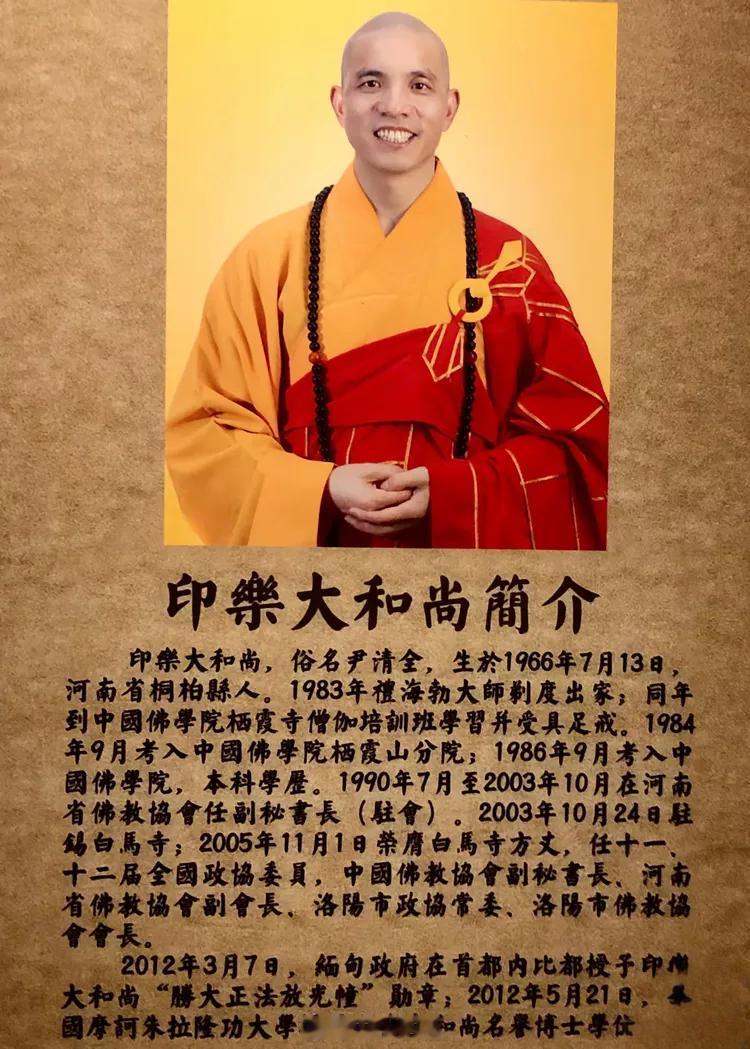 印樂大和尚簡介
印樂大和尚，俗名尹清全，生於1966年7月13日，
河南省桐柏縣人。1983年禮海勃大師剃度出家；同年
到中國佛學院栖霞寺僧伽培訓班學習并受具足戒。1984
年9月考入中國佛學院栖霞山分院；1986年9月考入中
國佛學院，本科學歷。1990年7月至2003年10月在河南
省佛教協會任副秘書長（駐會）。2003年10月24日駐
錫白馬寺；2005年11月1日榮膺白馬寺方丈，任十一、
十二届全國政協委員，中國佛教協會副秘書長、河南
省佛教協會副會長、洛陽市政協常委、洛陽市佛教協
會會長。
2012年3月7日，緬甸政府在首都内比都授予印樂
大和尚“勝大正法放光幢”勛章；2012年5月21日，
國摩訶朱拉隆功大學 和尚名譽博士學位